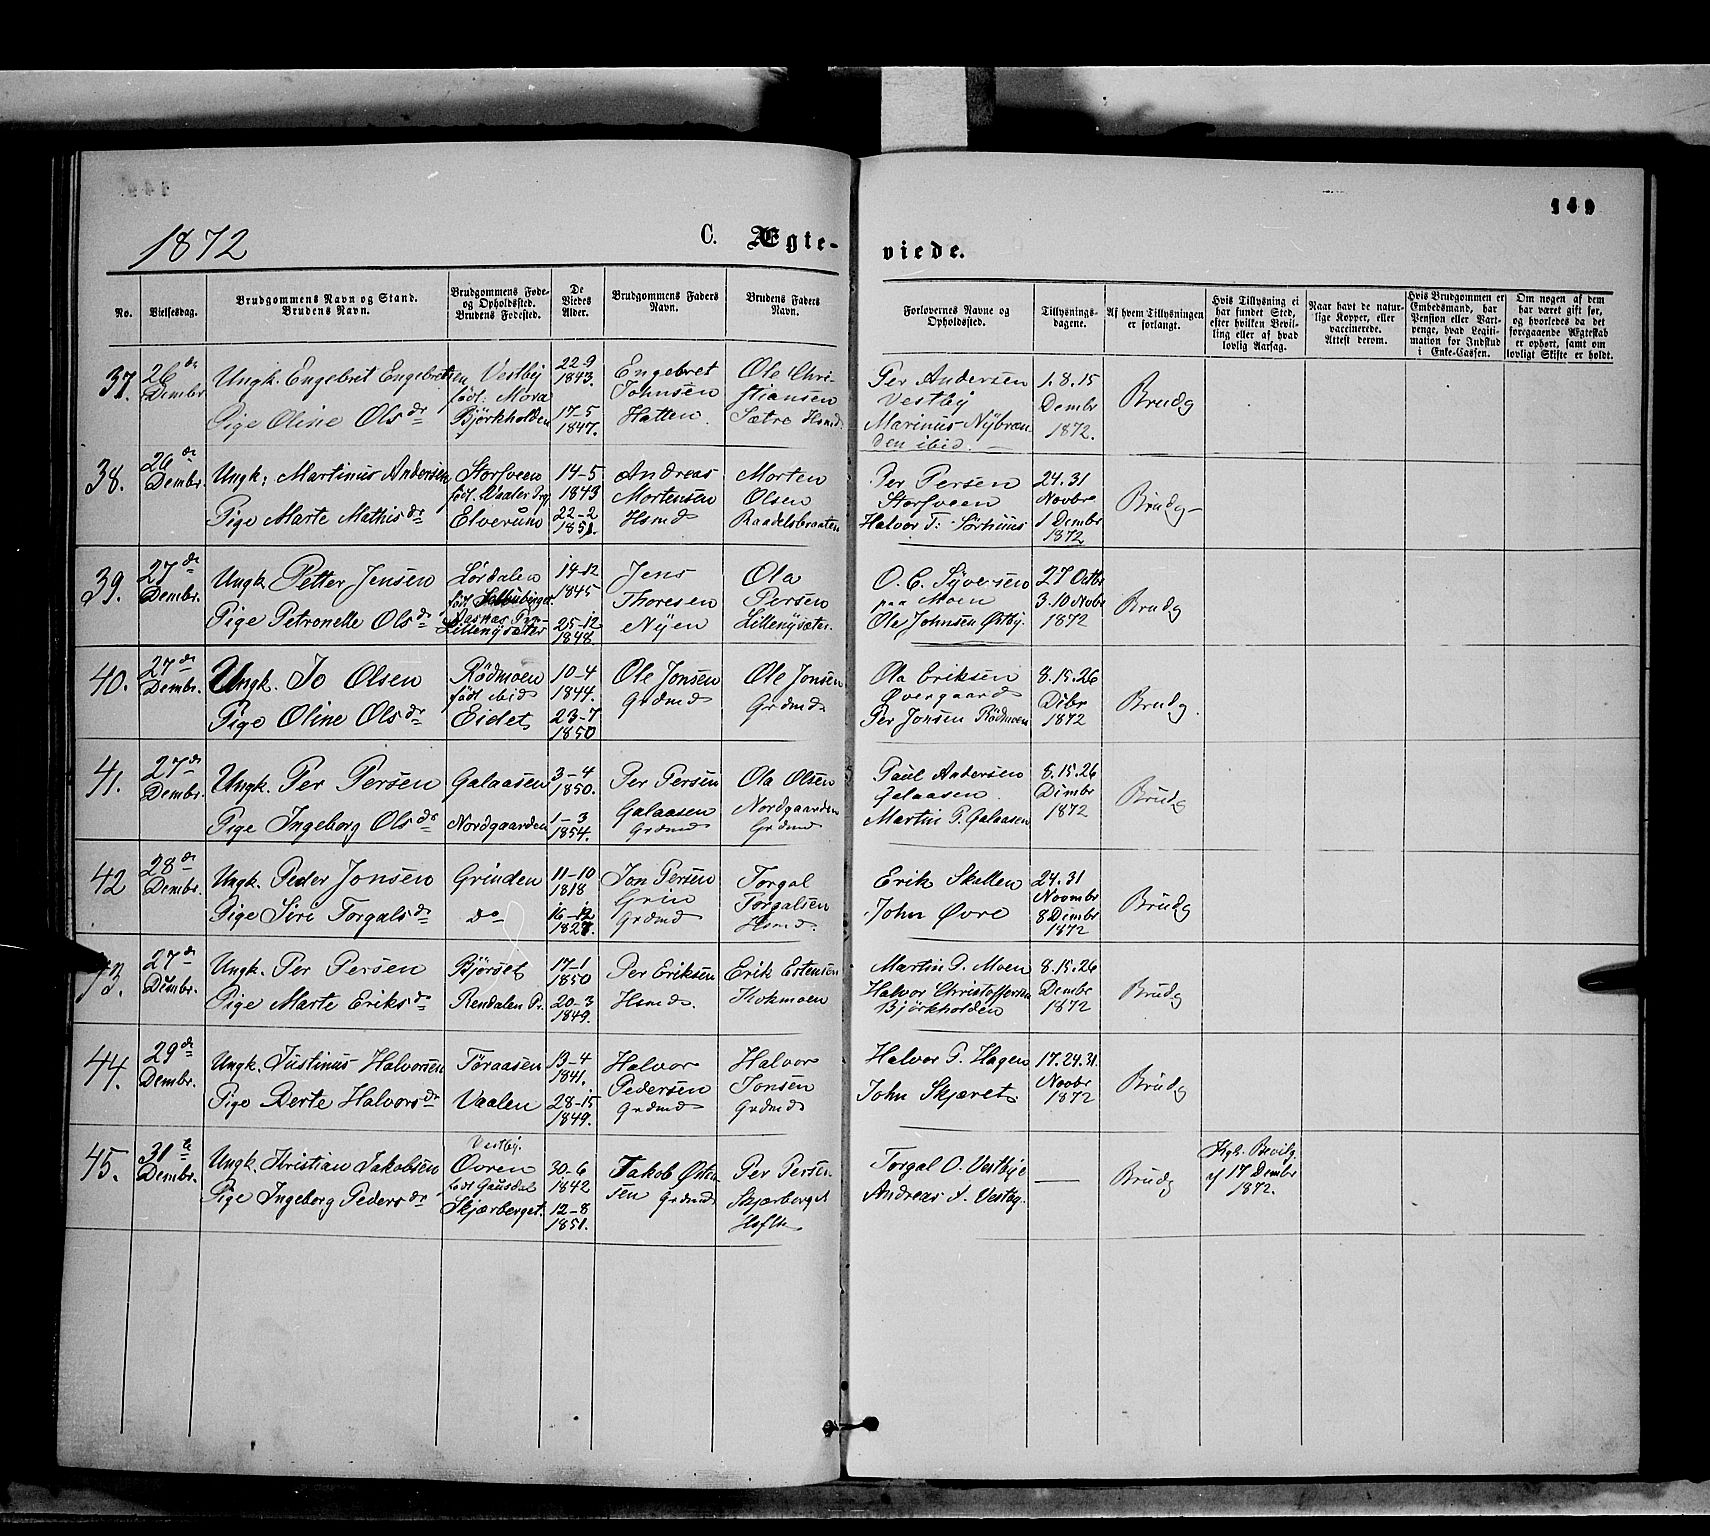 149
1872 C. Ægte- viede.
No. Vielsesdag. Brudgommens Navn og Stand. Brudens Navn. Brudgommens Føde- og Opholdssted. Brudens Fødested. De Viedes Alder. Brudgommens Faders Navn. Brudens Faders Navn. Forlovernes Navne og Opholdssted. Tillysnings- dagene. Af hvem Tillysningen er forlangt. Hvis Tillysning ei har fundet Sted, efter hvilken Bevil- ling eller af hvad lovlig Aarsag. Naar havt de natur- lige Kopper, eller vaccinerede. Attest derom. Hvis Brudgommen er Embedsmand, har Pension eller Vart- penge, hvad Legiti- mation for Indskud i Enke-Cassen. Om nogen af dem har været gift før, og hvorledes da det foregaaende Ægteskab er ophørt, samt om lovligt Skifte er holdt.
37. 26de Dembr. Ungk. Engebret Engebretsen, Vestby 22-9 Engebret Ole Chri- Per Andersen 1. 8. 15 Brudg
født: Mora 1843. Johnsen stiansen Vestby Dembr
Pige Oline Olsdr Björkholden 17-5 1847. Hatten. Sætre Hsmd. Marinus Nÿbraa- 1872.
den ibid.
38. 26de Dembr. Ungk: Martinus Andersen Storsveen 14-5 Andreas Morten Per Persen 24. 31 Brudg
født. Vaaler Prg 1843 Mortensen Olsen Storsveen Novbr
Pige Marte Mathisdr Elverum 22-2 1851. Hsmd Raadelsbraaten Halvor T: Sörhuus 1 Dembr
1872
39. 27de Dembr. Ungk. Petter Jensen Lördalen 14-12 Jens Ola O. C. Syversen 27 Octbr Brudg
født 1845 Thoresen Persen paa Moen 3. 10 Novbr
Aasnes Prg
Pige Petronelle Olsdr Lillenysæter 25-12 1848. Nÿen Lillenysæter. Ole Johnsen Østby. 1872
40. 27de Dembr. Ungk. Jo Olsen Rödmoen 10-4 Ole Jonsen Ole Jonsen Ola Eriksen 8. 15. 26 Brudg.
født ibid 1844. Grdmd Grdmd Øvergaard Dcbr
Pige Oline Olsdr Eidet 23-7 1850 Per Jonsen Rödmoen 1872
41. 27de Dembr. Ungk. Per Persen Galaasen 3-4 1850. Per Persen Ola Olsen Paul Andersen 8. 15. 26 Brudg
Galaasen Nordgaarden Galaasen. Dembr
Pige Ingeborg Olsdr Nordgaarden 1-3 1854. Grdmd Grdmd Martin P. Galaasen 1872
42 28de Dembr. Ungk. Peder Jonsen Grinden 11-10 1818 Jon Persen Torgal Erik Skallen 24. 31 Brudg
Grin Torgalsen Novmbr
Pige Siri Torgalsdr do 16-12 1827. Grdmd Hsmd. John Øvre 8 Dembr
1872
43. 27de Dembr. Ungk. Per Persen Björset 17-1 1850 Per Eriksen Erik Estensen Martin P. Moen 8. 15. 26 Brudg
Pige Marte Eriksdr Rendalen Pr. 20-3 1849. Hsmd. Kokmoen Halvor Christoffersen Dembr
Björkholden 1872
44. 29de Dembr. Ungk. Justinus Halvorsen Töraasen 13-4 1841. Halvor Halvor Halvor P. Hagen 17. 24. 31. Brudg
Pedersen Jonsen Novbr
Pige Berte Halvorsdr Vaalen 28-15 1849. Grdmd Grdmd John Skjæret. 1872
45. 31te Dembr. Vestby.
Ungk. Kristian Jakobsen Øvren 30-6 Jakob Østen- Per Persen Torgal O. Vestbye — Brudg Kgl. Bevilg.
født Gausdal 1842 sen Grdmd Skjærberget Andreas A. Vestby. af 17 Dembr
Pige Ingeborg Pedersdr Skjærberget. 12-8 1851. 1872.